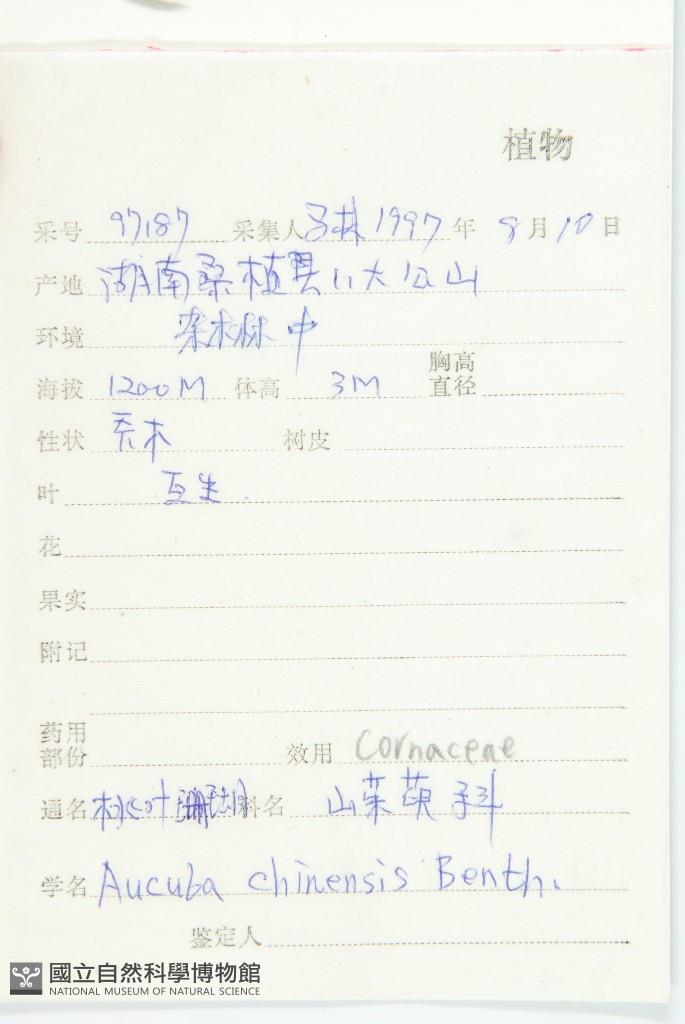 植物
采号 97187 采集人 吕林 1997年 8月10日
产地 湖南桑植县八大公山
环境 杂木林中
胸高
海拔 1200M 体高 3M 直径
性状 乔木 树皮
叶 互生.
花
果实
附记
药用
部份 效用 Cornaceae
通名 桃叶珊瑚 科名 山茱萸科
学名 Aucuba chinensis Benth.
鉴定人
國立自然科學博物館
NATIONAL MUSEUM OF NATURAL SCIENCE